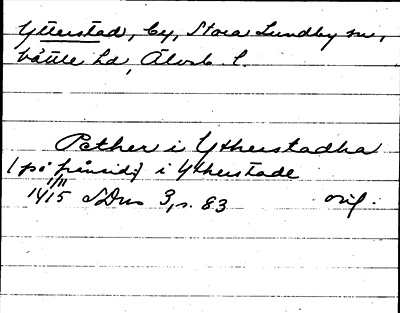 Ytterstad, by, Stora Lundby sn,
Vättle hd, Älvsb. l.
Pether i Ytherstadha
(på frånsid.) i Ytherstade
1/11
1415 SDns 3, s. 83 orig.